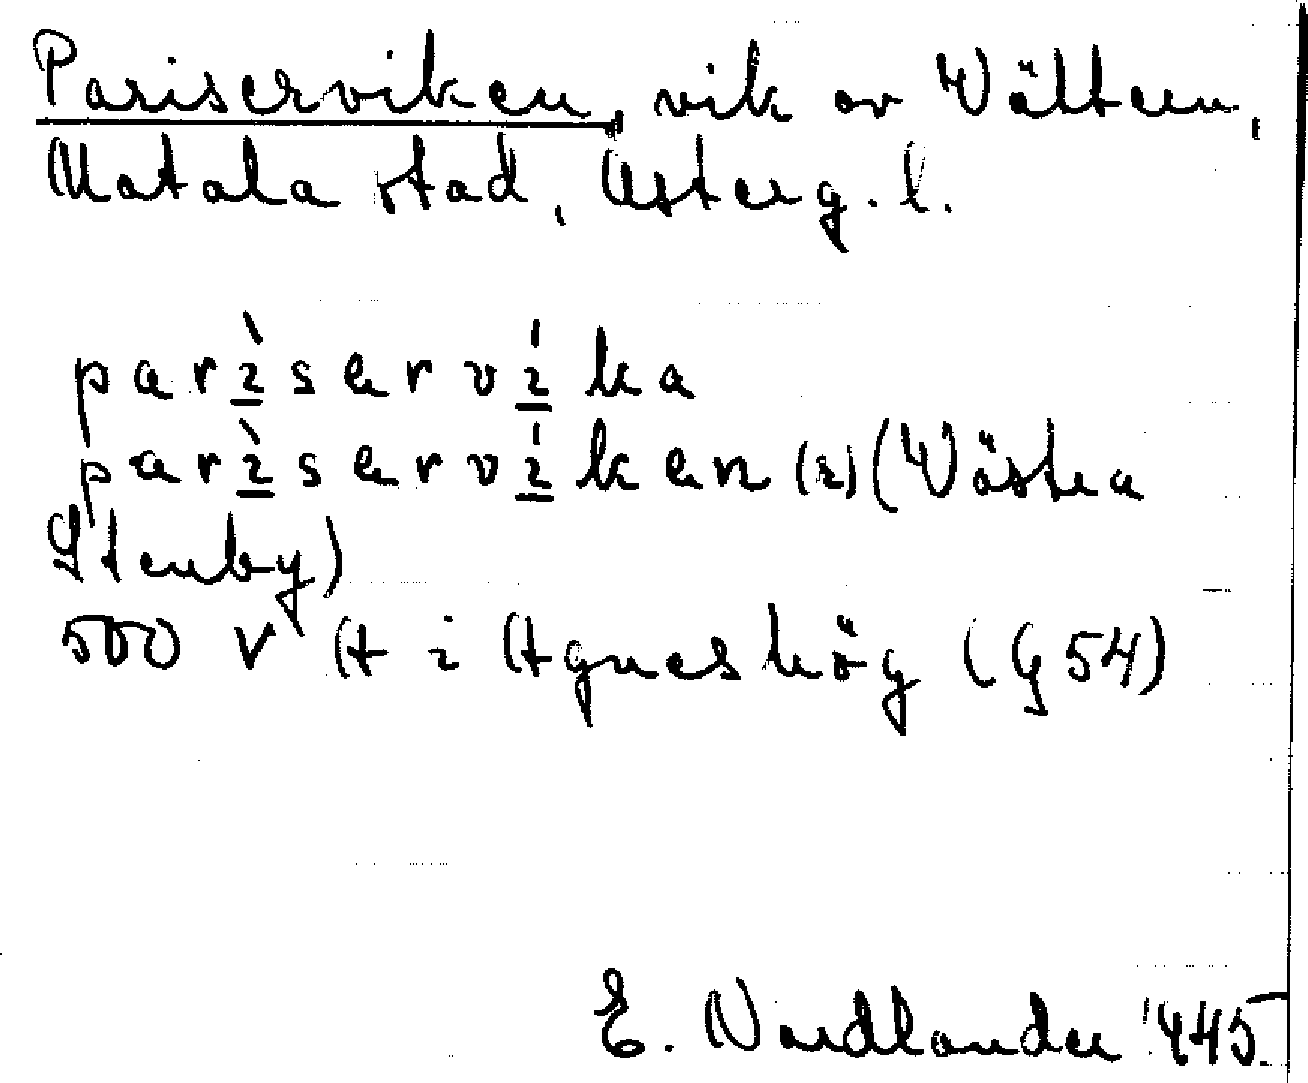 Pariserviken, vik av Vättern,
Motala stad, Österg. l.
parìservíka
parìservíken (2) (Västra
Stenby)
500 v A i Agneshög (G 54)
E. Nordlander 1945